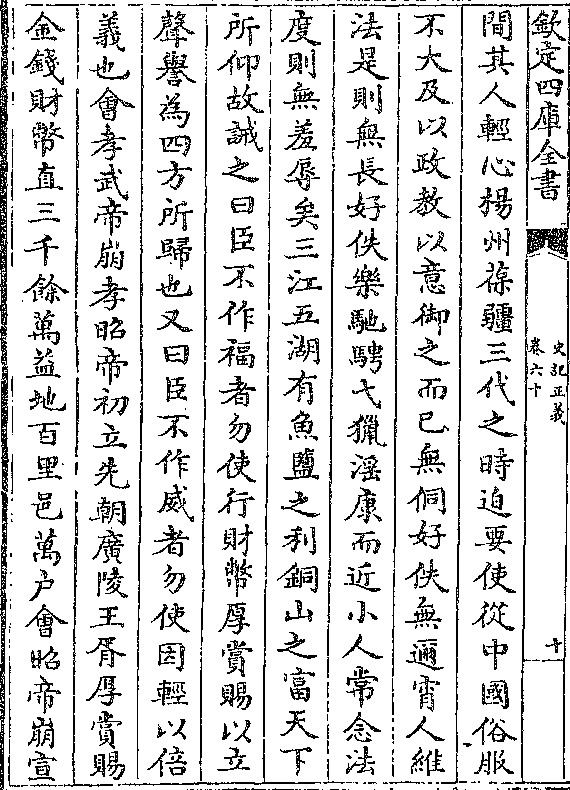 欽定四庫全書
史記正義
卷六十
十
間其人輕心楊州葆疆三代之時迫要使從中國俗服
不大及以政教以意御之而已無侗好佚無邇宵人維
法是則無長好佚樂馳騁弋獵滛康而近小人常念法
度則無羞辱矣三江五湖有魚鹽之利銅山之富天下
所仰故誡之曰臣不作福者勿使行財幣厚賞賜以立
聲譽為四方所歸也又曰臣不作威者勿使因輕以倍
義也會孝武帝崩孝昭帝初立先朝廣陵王胥厚賞賜
金錢財幣直三千餘萬益地百里邑萬户會昭帝崩宣